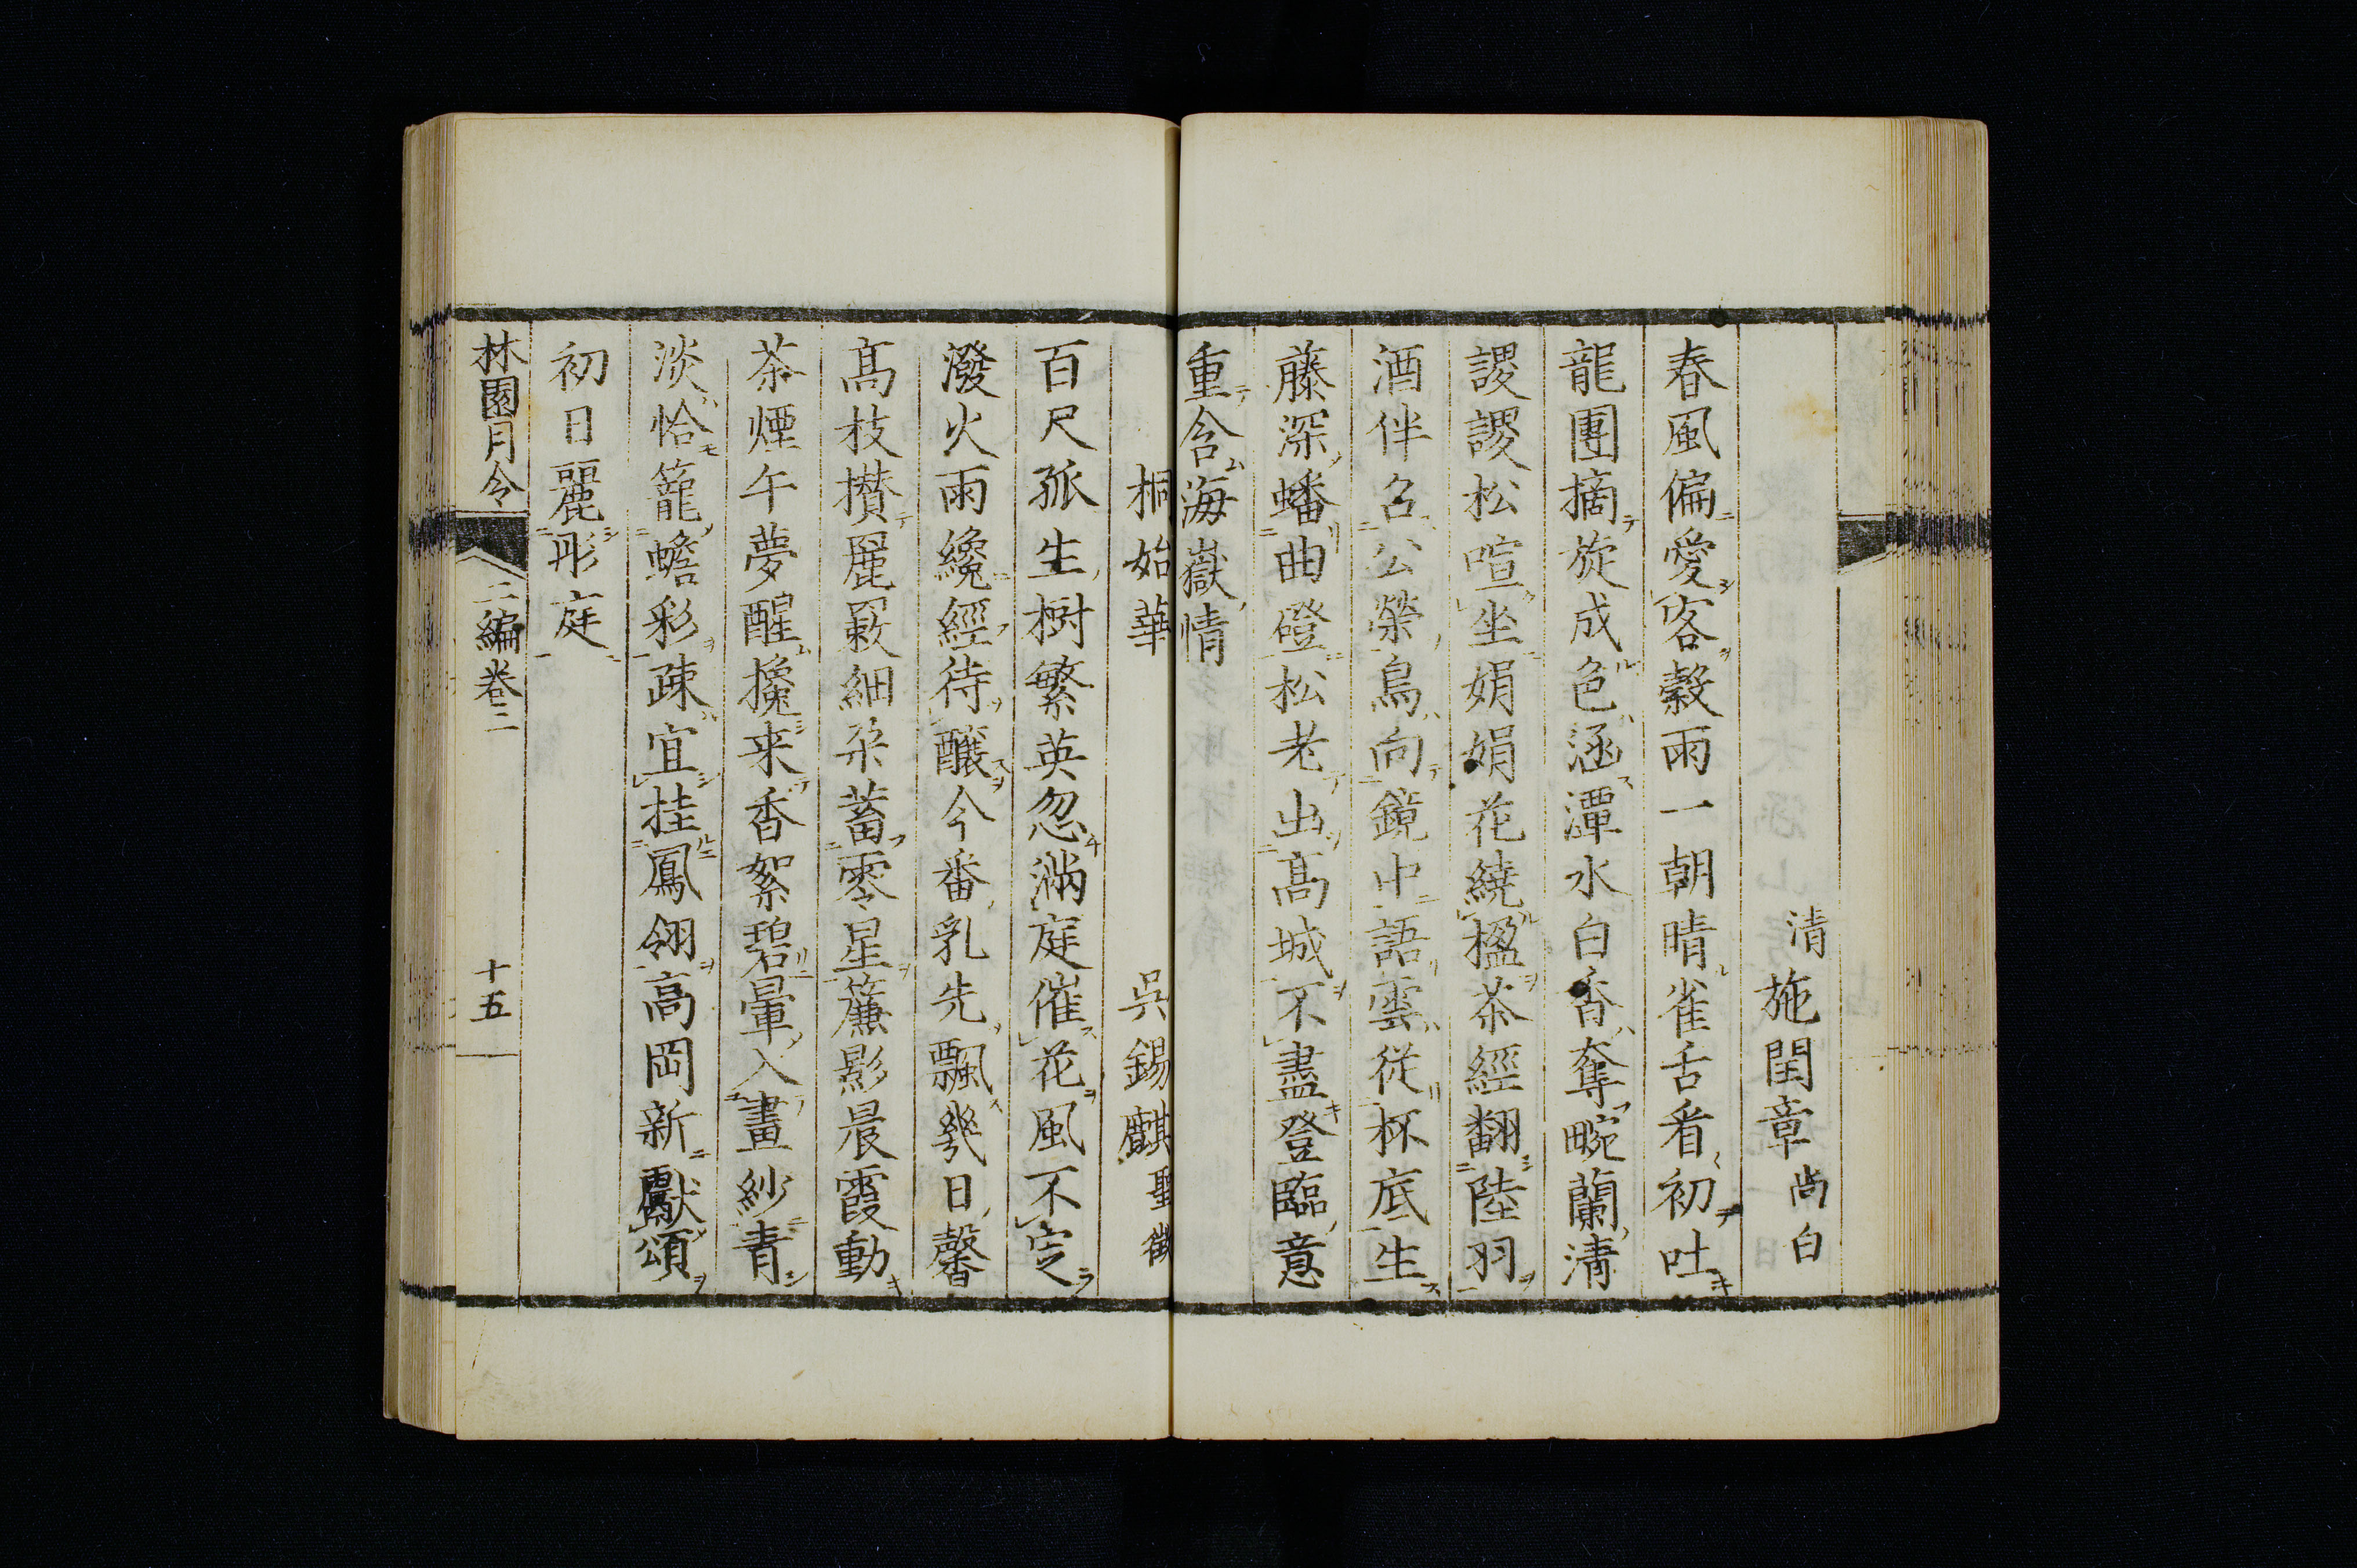 清 施閏章 尚白
春風偏愛客穀雨一朝晴雀舌看初吐
龍團摘旋成色涵潭水白香奪畹蘭清
謖謖松喧坐娟娟花繞楹茶經翻陸羽
酒伴名公榮鳥向鏡中語雲從杯底生
藤深蟠曲磴松老出高城不盡登臨意
重含海嶽情
桐始華 吳錫麒 聖徵
百尺孤生樹繁英忽滿庭催花風不定
潑火雨纔經待釀今番乳先飄幾日馨
高枝攢麗䅵細朶蓄零星簾影晨霞動
茶煙午夢醒攙来香絮碧暈入畫紗青
淡恰籠蟾彩疎宜挂鳳翎高岡新獻頌
初日麗彤庭
林園月令 二編卷三 十五